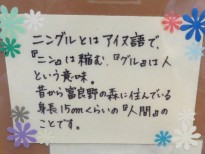 ニングルとはアイヌ語で、
『ニン』は縮む、『グル』は人
という意味。
昔から富良野の森に住んでいる
身長15cmくらいの『人間』の
ことです。